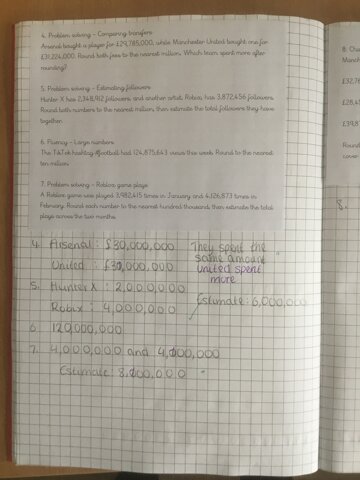 4. Problem solving - Comparing transfers
Arsenal bought a player for £29,785,000, while Manchester United bought one for
£31,224,000. Round both fees to the nearest million. Which team spent more after
rounding?
5. Problem solving - Estimating followers
Hunter X has 2,348,912 followers and another artist, Robux, has 3,872,456 followers.
Round both numbers to the nearest million, then estimate the total followers they have
together.
6. Fluency - Large numbers
The TikTok hashtag #football had 124,875,643 views this week. Round to the nearest
ten million.
7. Problem solving - Roblox game plays
A Roblox game was played 3,982,415 times in January and 4,126,873 times in
February. Round each number to the nearest hundred thousand, then estimate the total
plays across the two months.
4. Arsenal : £30,000,000 They spent the
same amount
United : £31,000,000 united spent
more
5. Hunter X : 2,000,000
Estimate: 6,000,000
Robux : 4,000,000
6. 120,000,000
7. 4,000,000 and 4,100,000
Estimate: 8,100,000
8. Cha
Mas
£32,76
£28,4
£39,8
Round
cover
8.